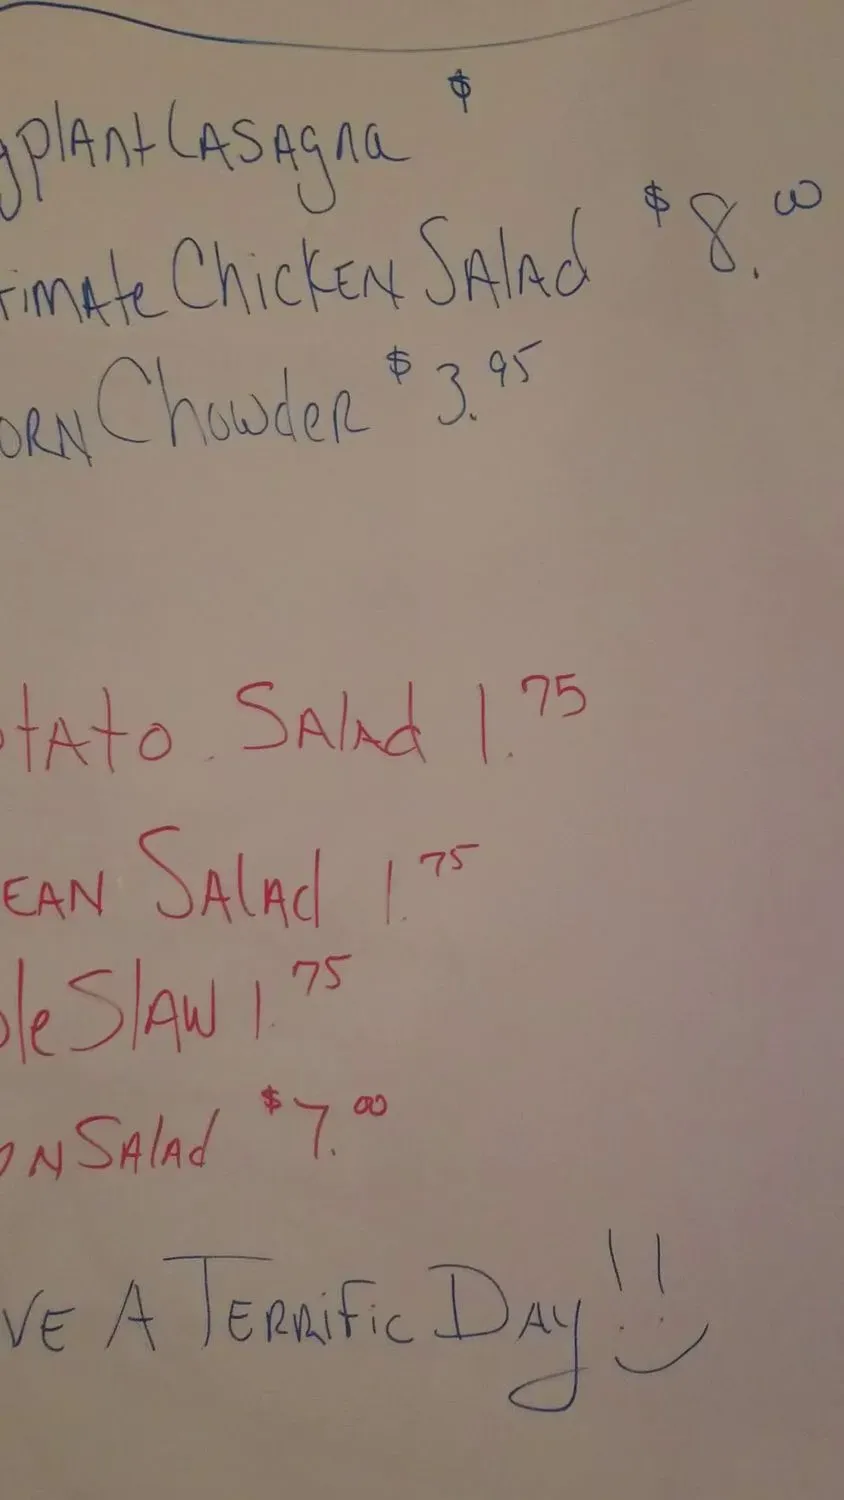 gplant Lasagna $
timate Chicken Salad $8.00
orn Chowder $3.95
otato Salad 1.75
ean Salad 1.75
ole Slaw 1.75
on Salad $7.00
ve A Terrific Day!!